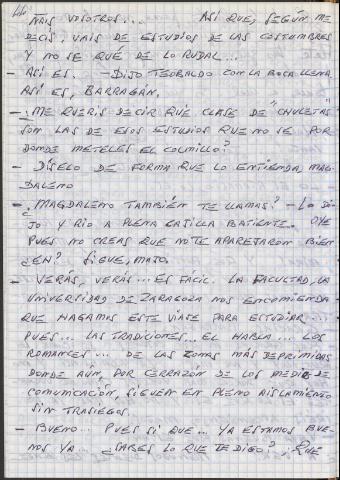 44
NAIS VDIOTROS... ASI QUE, SEGÚN ME
DECIS, VAIS DE ESTUDIOS DE LAS COSTUMBRES
Y NO SE QUÉ DE LO RURAL...
- ASI ES. - DIJO TEOBALDO CON LA BOCA LLENA.
ASI ES, BARRAGAN.
- ¿ME QUERIS DECIR QUÉ CLASE DE "CHULETAS"
SON LAS DE ESOS ESTUDIOS QUE NO SE POR
DONDE METELES EL COLMILLO?
- DÍSELO DE FORMA QUE LO ENTIENDA, MAG-
DALENO
- ¿MAGDALENO TAMBIÉN TE LLAMAS? - LO DI-
JO Y RIO A PLENA CATILLA BATIENTE. OYE
PUES NO CREAS QUE NO TE APAREJARON BIEN
¿EN? SIGUE, MAJO.
- VERÁS, VERÁS... ES FACIL. LA FACULTAD, LA
UNIVERSIDAD DE ZARAGOZA NOS ENCOMIENDA
QUE HAGAMOS ESTE VIAJE PARA ESTUDIAR...
PUES... LAS TRADICIONES... EL HABLA... LOS
ROMANCES... DE LAS ZONAS MÁS DEPRIMIDAS
DONDE AÚN, POR CERRAZÓN DE LOS MEDIOS DE
COMUNICACIÓN, SIGUEN EN PLENO AISLAMIENTO
SIN TRASIEGOS.
- BUENO... PUES SI QUE... YA ESTAMOS BUE-
NOS YA... ¿SABES LO QUE TE DIGO? ¡QUE